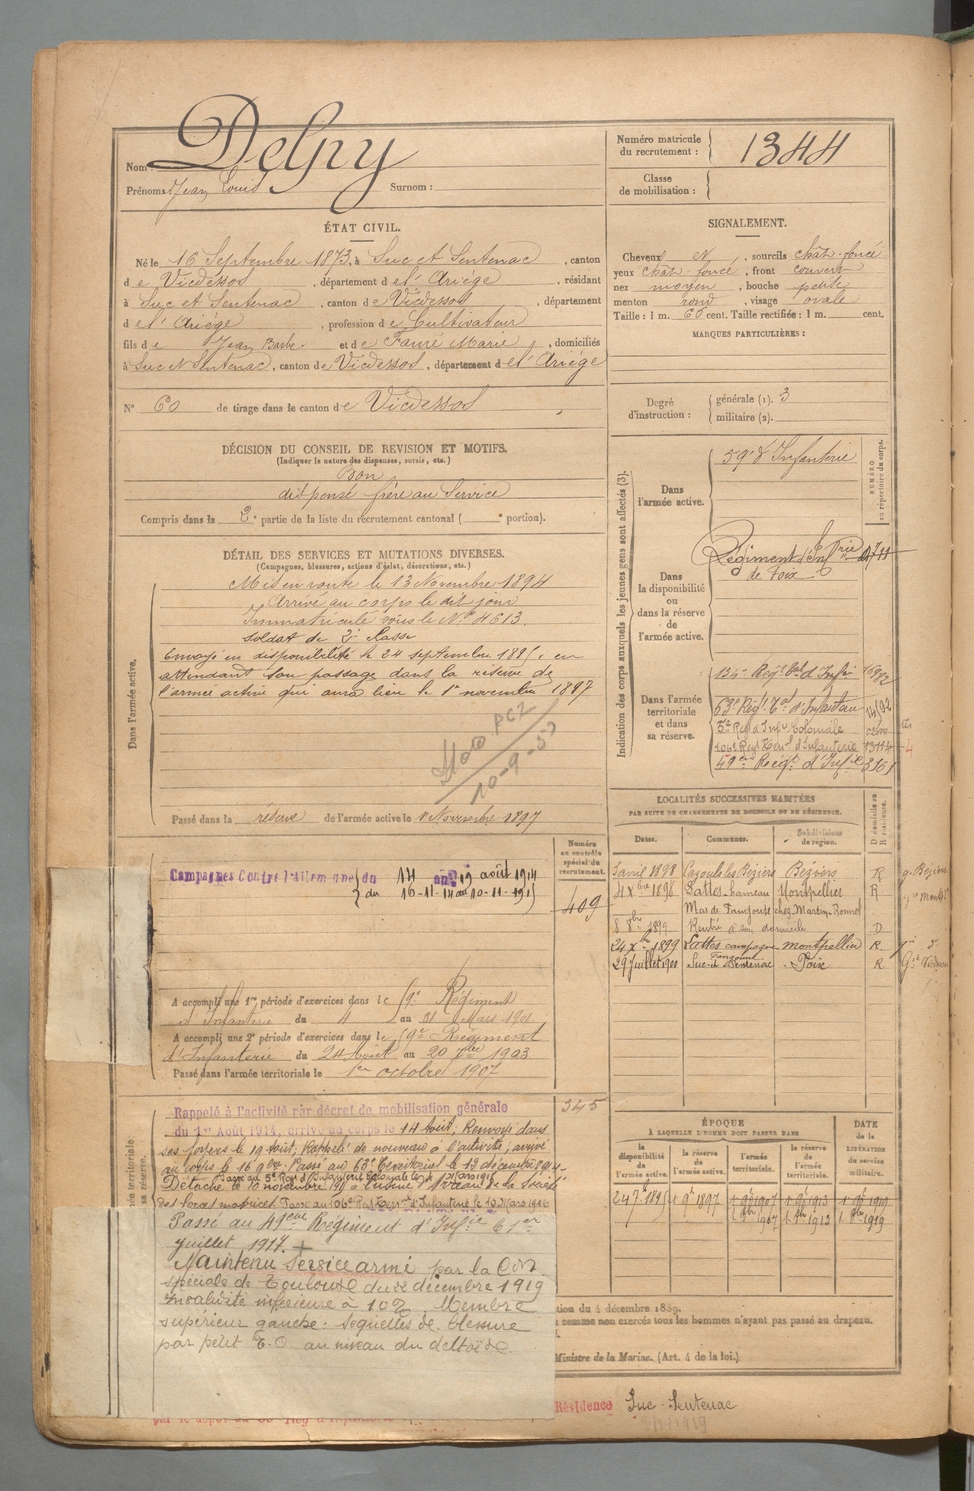 Nom : Delpy
Prénoms : Jean Louis Surnom :
Numéro matricule du recrutement : 1344
Classe de mobilisation :
ÉTAT CIVIL.
Né le 16 Septembre 1873, à Suc et Sentenac, canton
de Vicdessos, département de l'Ariège, résidant
à Suc et Sentenac, canton de Vicdessos, département
de l'Ariège, profession de Cultivateur
fils de Jean Barbe et de Fauré Marie, domiciliés
à Suc et Sentenac, canton de Vicdessos, département de l'Ariège
N° 60 de tirage dans le canton de Vicdessos
SIGNALEMENT.
Cheveux et, sourcils chât-foncé
yeux chât-foncé, front couvert
nez moyen, bouche petite
menton rond, visage ovale
Taille : 1 m. 60 cent. Taille rectifiée : 1 m. cent.
MARQUES PARTICULIÈRES :
Degré d'instruction : générale (1). 3
militaire (2).
DÉCISION DU CONSEIL DE REVISION ET MOTIFS.
(Indiquer la nature des dispenses, sursis, etc.)
Bon
dispensé frère au Service
Compris dans la 2e partie de la liste du recrutement cantonal ( portion).
DÉTAIL DES SERVICES ET MUTATIONS DIVERSES.
(Campagnes, blessures, actions d'éclat, décorations, etc.)
Dans l'armée active.
Mis en route le 13 Novembre 1894
Arrivé au corps le dit jour
Immatriculé sous le No 4613.
Soldat de 2e classe
Envoyé en disponibilité le 24 septembre 1895, en
attendant son passage dans la réserve de
l'armée active qui aura lieu le 1er novembre 1897
10-9-53
Passé dans la réserve de l'armée active le 1 Novembre 1897
Indication des corps auxquels les jeunes gens sont affectés (3).
NUMÉRO au répertoire du corps.
Dans l'armée active.
59e d'Infanterie
Dans la disponibilité ou dans la réserve de l'armée active.
Régiment d'Infrie
de Foix
Dans l'armée territoriale et dans sa réserve.
134e Régt tal d'Infie
63e Régt Tal d'Infanterie 14192
5e Régt d'Infie Coloniale
106e Régt Terral d'Infanterie 13114
49e Régt d'Infie 3161
LOCALITÉS SUCCESSIVES HABITÉES
PAR SUITE DE CHANGEMENTS DE DOMICILE OU DE RÉSIDENCE.
Dates. Communes. Subdivisions de région. D domicile ou R résidence.
5 avril 1898 Cazouls les Béziers Béziers R
4 Xbre 1898 Lattes hameau Montpellier R
Mas de Fangouse chez Martin
8 8bre 1899 Rentré à son domicile D
24 Xbre 1899 Lattes campagne Fangouse Montpellier R
29 Juillet 1900 Suc et Sentenac Foix R
Numéro au contrôle spécial du recrutement.
409
Campagnes Contre l'Allemagne du 14 au 19 août 1914
du 16-11-14 au 10-11-1915
A accompli une 1re période d'exercices dans le 9e Régiment
d'Infanterie du 4 au 31 Mars 1901
A accompli une 2e période d'exercices dans le 9e Régiment
d'Infanterie du 24 Août au 20 7bre 1903
Passé dans l'armée territoriale le 1er octobre 1907
345
Rappelé à l'activité par décret de mobilisation générale
du 1er Août 1914, arrivé au corps le 14 Août, Renvoyé dans
ses foyers le 19 Août, Rappelé de nouveau à l'activité, arrivé
au corps le 16 9bre. Passé au 63e Territorial le 12 décembre 1914
Passé au 5e Régt d'Infanterie Coloniale le Mars 1915
Détaché le 10 novembre 1915 à de la Société
des Forces motrices Passé au 106e Régt Terral d'Infanterie le 10 Mars 1916
Passé au 49ème Régiment d'Infie le 1er
Juillet 1917.
Maintenu Service armé par la Con
spéciale de Toulouse du 22 décembre 1919
Invalidité inférieure à 10%. Membre
supérieur gauche : séquelles de blessure
par petit E.O. au niveau du deltoïde.
ÉPOQUE
À LAQUELLE L'HOMME DOIT PASSER DANS
la disponibilité de l'armée active. la réserve de l'armée active. l'armée territoriale. la réserve de l'armée territoriale.
DATE de la LIBÉRATION du service militaire.
24 7bre 1895 1 9e 1897 1 9e 1907 1 9e 1913 1 9e 1919
1 8bre 1907 1 8bre 1913 1 8bre 1919
tion du 4 décembre 1889.
comme non exercés tous les hommes n'ayant pas passé au drapeau.
Ministre de la Marine. (Art. 4 de la loi.)
Résidence Suc-Sentenac